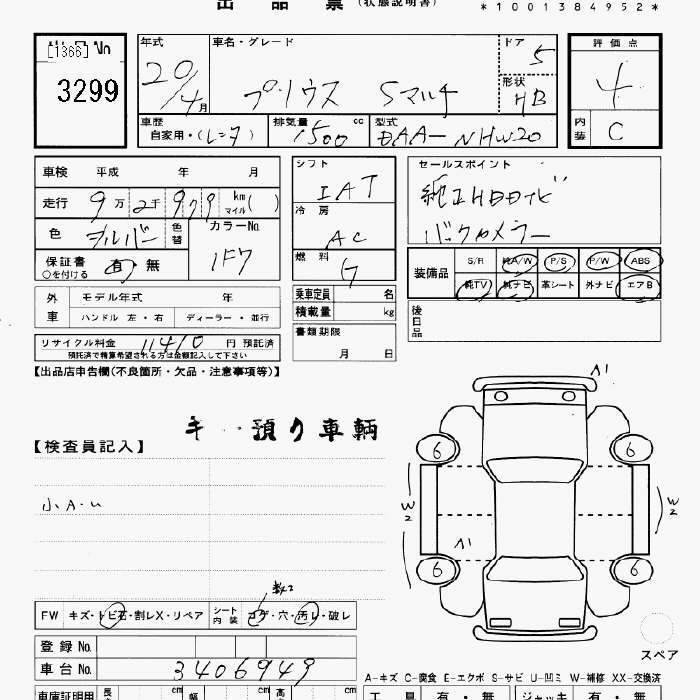 出品票 (状態説明書) *1001384952*
[1366] No
3299
年式 20/4月
車名・グレード プリウス Sマルチ
ドア 5
形状 HB
評価点 4
内装 C
車歴 自家用・(レンタ)
排気量 1500 cc
型式 DAA-NHW20
車検 平成 年 月
走行 9万2千979 km マイル( )
色 シルバー 色替
カラーNo 1F7
保証書 ○を付ける 有・無
シフト IAT
冷房 AC
燃料 G
セールスポイント
純正HDDナビ
バックカメラー
装備品 S/R 純A/W P/S P/W ABS
純TV 純ナビ 革シート 外ナビ エアB
外車 モデル年式 年
ハンドル 左・右 ディーラー・並行
乗車定員 名
積載量 kg
後日品
リサイクル料金 11410 円 預託済
預託済で精算希望される方は金額記入して下さい
書類期限 月 日
【出品店申告欄(不良箇所・欠品・注意事項等)】
キ・預り車輌
【検査員記入】
小A・U
A1
6 6
W2 W2
A1
6 6
スペア
FW キズ・トビ石・割レX・リペア シート内装 コゲ・穴・汚レ・破レ
登録No.
車台No. 3406949
A-キズ C-腐食 E-エクボ S-サビ U-凹ミ W-補修 XX-交換済
車庫証明用 長 cm 幅 cm 高 cm
工具 有・無 ジャッキ 有・無